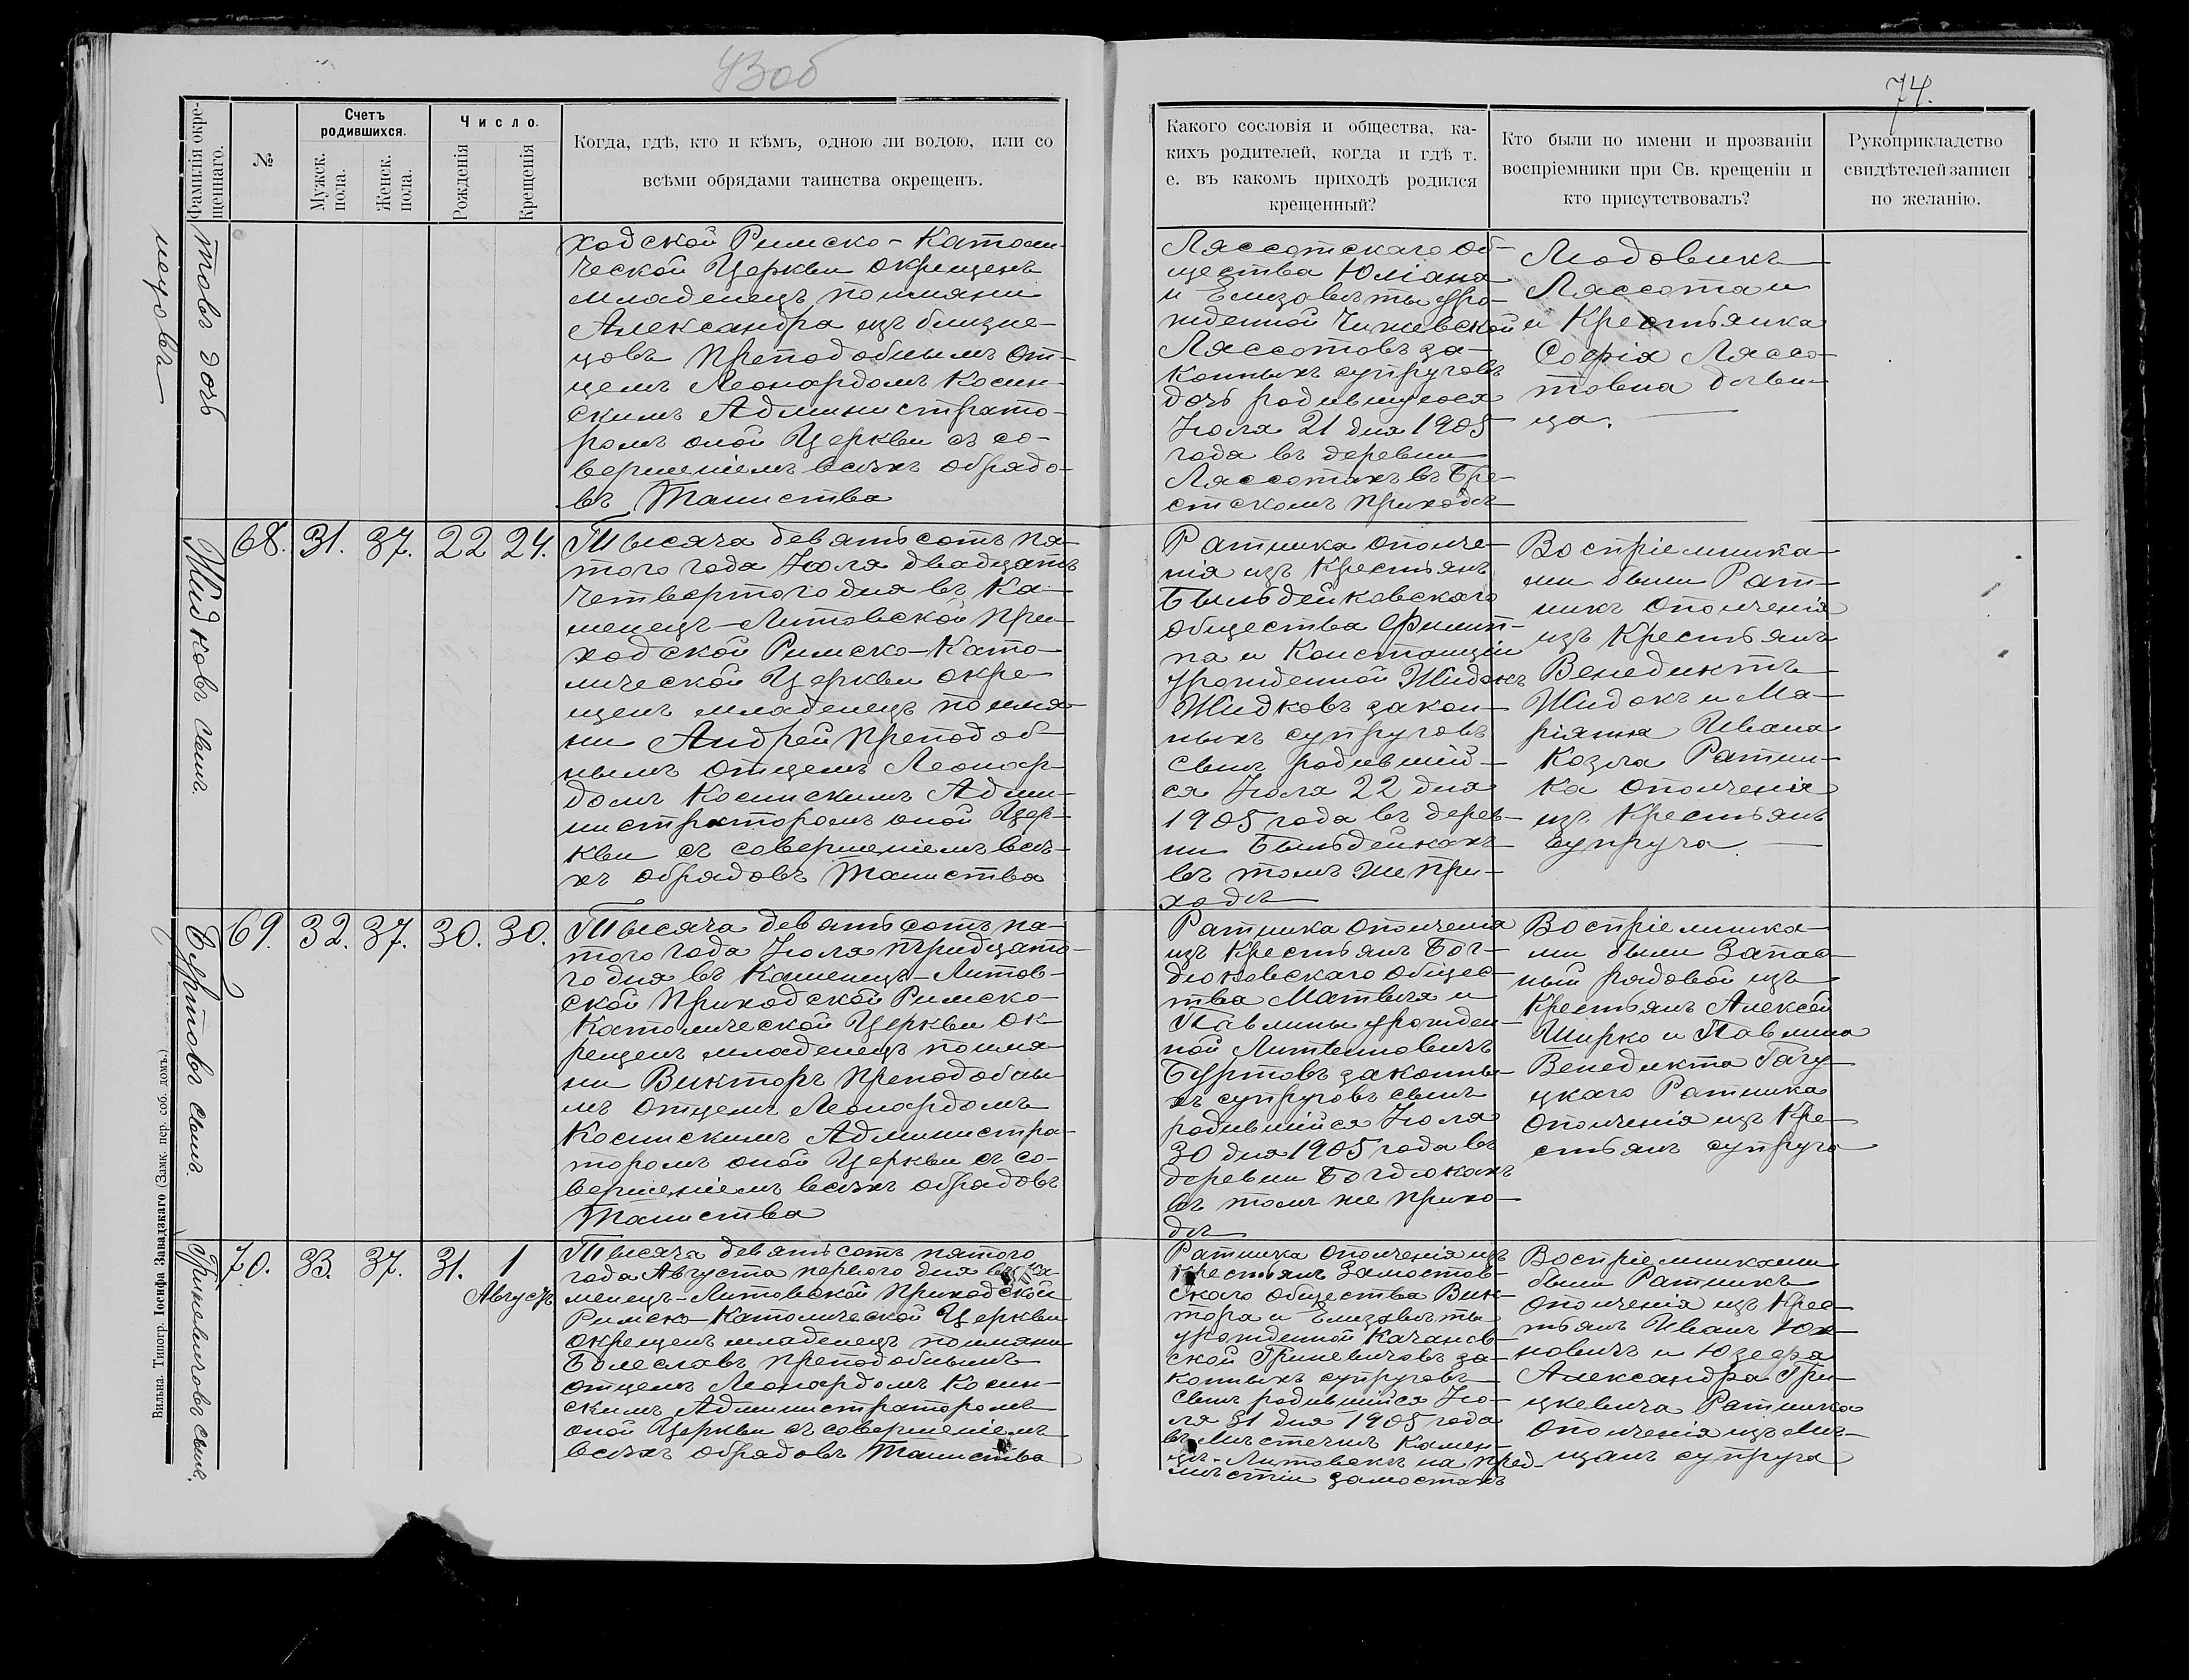 43об
74.
Фамилія окре-
щеннаго.
№
Счетъ
родившихся.
Мужск.
пола.
Женск.
пола.
Число.
Рожденія
Крещенія
Когда, гдѣ, кто и кѣмъ, одною ли водою, или со
всѣми обрядами таинства окрещенъ.
Какого сословія и общества, ка-
кихъ родителей, когда и гдѣ т.
е. въ какомъ приходѣ родился
крещенный?
Кто были по имени и прозваніи
воспріемники при Св. крещеніи и
кто присутствовалъ?
Рукоприкладство
свидѣтелей записи
по желанію.
товъ дочь
ходской Римско-Католи-
ческой Церкви окрещенъ
младенецъ по имяни
Александра изъ близне-
цовъ Преподобнымъ От-
цемъ Леонардомъ Косин-
скимъ Администрато-
ромъ оной Церкви съ со-
вершеніемъ всѣхъ обрядо-
въ Таинства
Ляссотскаго об-
щества Юліана
и Елизаветы уро-
жденной Чижевской
Ляссотовъ за-
конныхъ супруговъ
дочь родившуюся
Іюля 21 дня 1905
года въ деревни
Ляссотахъ въ Бре-
стскомъ приходѣ
Людовикъ
Ляссота и
и Крестьянка
Софія Ляссо-
товна дѣви-
ца.
Жидковъ сынъ.
68. 31. 37. 22 24.
Тысяча девятьсотъ пя-
того года Іюля двадцать
четвертого дня въ Ка-
менецъ-Литовской При-
ходской Римско-Като-
лической Церкви окре-
щенъ младенецъ по имя-
ни Андрей Преподоб-
нымъ Отцемъ Леонар-
домъ Косинскимъ Адми-
нистраторомъ оной Цер-
кви съ совершеніемъ всѣ-
хъ обрядовъ Таинства
Ратника ополче-
нія изъ Крестьянъ
Быльдейковскаго
общества Филип-
па и Констанціи
урожденной Жидокъ
Жидковъ закон-
ныхъ супруговъ
сынъ родивший-
ся Іюля 22 дня
1905 года въ дерев-
ни Быльдейкахъ
въ томъ же при-
ходѣ
Воспріемника-
ми были Рат-
никъ Ополченія
изъ Крестьянъ
Венедиктъ
Жидокъ и Ма-
ріянна Ивана
Козла Ратни-
ка Ополченія
изъ Крестьянъ
супруга.
Буртовъ сынъ.
69. 32. 37. 30. 30.
Тысяча девятьсотъ пя-
того года Іюля тридцато-
го дня въ Каменецъ-Литов-
ской Приходской Римско-
Католической Церкви ок-
рещенъ младенецъ по имя-
ни Викторъ Преподобны-
мъ Отцемъ Леонардомъ
Косинскимъ Администра-
торомъ оной Церкви съ со-
вершеніемъ всѣхъ обрядовъ
Таинства
Ратника Ополченія
изъ Крестьянъ Бог-
дюковскаго общес-
тва Матвѣя и
Павлины урожден-
ной Литвиновичъ
Буртовъ законны-
хъ супруговъ сынъ
родившийся Іюля
30 дня 1905 года въ
деревни Богдюкахъ
въ томъ же прихо-
дѣ
Воспріемника-
ми были Запас-
ный рядовой изъ
Крестьянъ Алексѣй
Ширко и Павлина
Венедикта Гачу-
цкаго Ратника
Ополченія изъ Кре-
стьянъ супруга
Гриневичовъ сынъ.
70. 33. 37. 31. 1
Августъ
Тысяча девятьсотъ пятого
года Августа первого дня въ Ка-
менецъ-Литовской Приходской
Римско-Католической Церкви
окрещенъ младенецъ по имяни
Болеславъ преподобнымъ
отцемъ Леонардомъ Косин-
скимъ Администраторомъ
оной Церкви съ совершеніемъ
всѣхъ обрядовъ Таинства
Ратника Ополченія изъ
Крестьянъ Замостов-
скаго общества Вик-
тора и Елизаветы
урожденной Качанов-
ской Гриневичовъ за-
конныхъ супруговъ
сынъ родившийся Ію-
ля 31 дня 1905 года
въ Мѣстечкѣ Камен-
цѣ-Литовскъ на пред-
мѣстіи Замостахъ
Воспріемниками
были Ратникъ
Ополченія изъ Крес-
тьянъ Иванъ Юх-
новичъ и Юзефа
Александра Гри-
цкевича Ратника
Ополченія изъ Мѣ-
щанъ супруга
Вильна. Типогр. Іосифа Завадзкаго (Замк. пер. соб. домъ.)